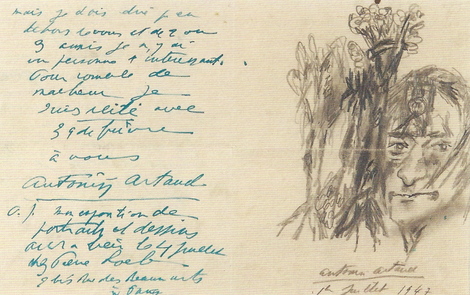 mais je dois dire qu'en
dehors de vous et de 2 ou
3 amis je n'y ai
vu personne d'intéressant.
Pour comble de
malheur je
suis alité avec
39 de fièvre
à vous
Antonin Artaud
P. S. mon exposition de
portraits et dessins
aura lieu le 4 juillet
chez Pierre Loeb
2 bis Rue des Beaux arts
à Paris
antonin artaud
1er juillet 1947